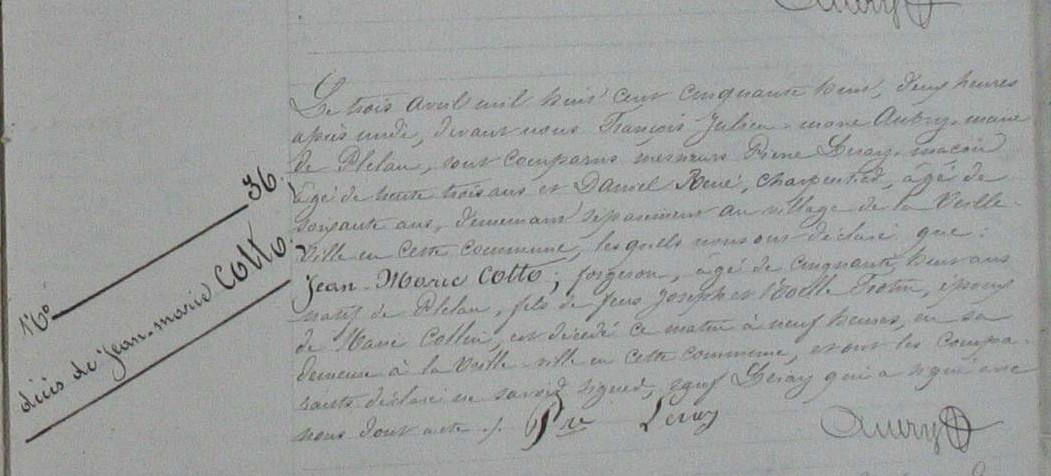 Aubry
N° 36.
décès de jean-marie Cotto
Le trois avril mil huit cent cinquante huit, deux heures
après midi, devant nous François Julien-marie Aubry, maire
de Plélan, sont comparus messieurs Pierre Leray, maçon
âgé de trente trois ans et Daniel René, charpentier, âgé de
soixante ans, demeurant séparément au village de la Vieille-
Ville en cette commune, lesquels nous ont déclaré que:
Jean-Marie Cotto; forgeron, âgé de cinquante huit ans
natif de Plélan, fils de feus Joseph et Noëlle époux
de Marie Collin, est décédé ce matin à neuf heures, en sa
demeure à la Vieille-ville en cette commune, et ont les compa-
rants déclaré ne savoir signer, sauf Leray qui a signé avec
nous dont acte ./. Pre Leray
Aubry